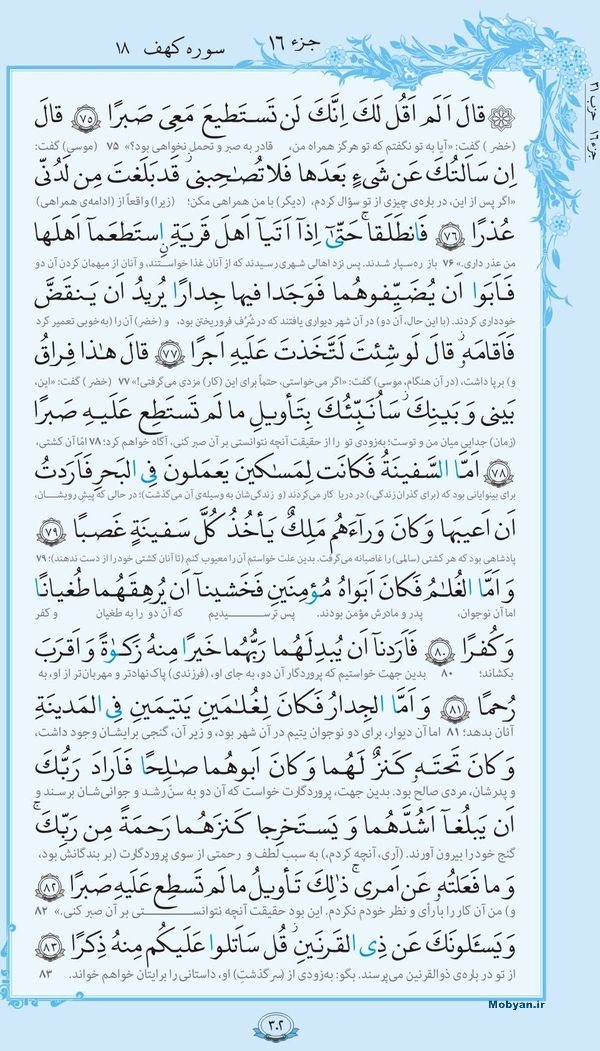 جزء ۱۶ سوره کهف ۱۸
حزب ۳۱ جزء ۱۶
قالَ اَلَم اَقُل لَكَ اِنَّكَ لَن تَستَطيعَ مَعِىَ صَبرًا ﴿۷۵﴾ قالَ
(خضر) گفت: «آیا به تو نگفتم که تو هرگز همراه من، قادر به صبر و تحمل نخواهی بود؟» ۷۵ (موسی) گفت:
اِن سَاَلتُكَ عَن شَىءٍ بَعدَها فَلا تُصاحِبنى قَد بَلَغتَ مِن لَدُنّى
«اگر پس از این، در باره‌ی چیزی از تو سؤال کردم، (دیگر) با من همراهی مکن؛ (زیرا) واقعاً از (ادامه‌ی همراهی)
عُذرًا ﴿۷۶﴾ فَانطَلَقا حَتّىٰ اِذآ اَتَيآ اَهلَ قَريَةٍ اِستَطعَمآ اَهلَها
من عذر داری.» ۷۶ باز ره‌سپار شدند. پس نزد اهالی شهری رسیدند که از آنان غذا خواستند، و آنان از میهمان کردن آن دو
فَاَبَوا اَن يُضَيِّفوهُما فَوَجَدا فيها جِدارًا يُريدُ اَن يَنقَضَّ
خودداری کردند. (با این حال، آن دو) در آن شهر دیواری یافتند که در شُرُف فروریختن بود، و (خضر) آن را (به‌خوبی تعمیر کرد
فَاَقامَهُ قالَ لَو شِئتَ لَتَّخَذتَ عَلَيهِ اَجرًا ﴿۷۷﴾ قالَ هٰذا فِراقُ
و) برپا داشت، (در آن هنگام، موسی) گفت: «اگر می‌خواستی، حتماً برای این (کار) مزدی می‌گرفتی!» ۷۷ (خضر) گفت: «این،
بَينى وَ بَينِكَ سَاُنَبِّئُكَ بِتَأويلِ ما لَم تَستَطِع عَلَيهِ صَبرًا
(زمان) جدایی میان من و توست؛ به‌زودی تو را از حقیقت آنچه نتوانستی بر آن صبر کنی، آگاه خواهم کرد؛ ۷۸ امّا آن کشتی،
﴿۷۸﴾ اَمَّا السَّفينَةُ فَكانَت لِمَساكينَ يَعمَلونَ فِى البَحرِ فَاَرَدتُ
برای بینوایانی بود که (برای گذران زندگی،) در دریا کار می‌کردند (و زندگی‌شان به وسیله‌ی آن می‌گذشت)؛ در حالی که پیش رویشان،
اَن اَعيبَها وَ كانَ وَرآءَهُم مَلِكٌ يَأخُذُ كُلَّ سَفينَةٍ غَصبًا ﴿۷۹﴾
پادشاهی بود که هر کشتی (سالمی) را غاصبانه می‌گرفت. بدین علت خواستم آن را معیوب کنم (تا آنان کشتی خود را از دست ندهند)؛ ۷۹
وَ اَمَّا الغُلامُ فَكانَ اَبَواهُ مُؤمِنَينِ فَخَشينآ اَن يُرهِقَهُما طُغيانًا
اما آن نوجوان، پدر و مادرش مؤمن بودند. پس ترسیدیم که آن دو را به طغیان و کفر
وَ كُفرًا ﴿۸۰﴾ فَاَرَدنآ اَن يُبدِلَهُما رَبُّهُما خَيرًا مِنهُ زَكوٰةً وَ اَقرَبَ
بکشاند؛ ۸۰ بدین جهت خواستیم که پروردگار آن دو، به جای او، (فرزندی) پاک‌نهادتر و مهربان‌تر از او، به
رُحمًا ﴿۸۱﴾ وَ اَمَّا الجِدارُ فَكانَ لِغُلامَينِ يَتيمَينِ فِى المَدينَةِ
آنان بدهد؛ ۸۱ اما آن دیوار، برای دو نوجوان یتیم در آن شهر بود، و زیر آن، گنجی برایشان وجود داشت،
وَ كانَ تَحتَهُ كَنزٌ لَهُما وَ كانَ اَبوهُما صالِحًا فَاَرادَ رَبُّكَ
و پدرشان، مردی صالح بود. بدین جهت، پروردگارت خواست که آن دو به سنّ رشد و جوانی‌شان برسند و
اَن يَبلُغآ اَشُدَّهُما وَ يَستَخرِجا كَنزَهُما رَحمَةً مِن رَبِّكَ
گنج خود را بیرون آورند. (آری، آنچه کردم،) به سبب لطف و رحمتی از سوی پروردگارت (بر بندگانش بود،
وَ ما فَعَلتُهُ عَن اَمرى ذٰلِكَ تَأويلُ ما لَم تَسطِع عَلَيهِ صَبرًا ﴿۸۲﴾
و) من آن کار را با رأی و نظر خودم نکردم. این بود حقیقت آنچه نتوانستی بر آن صبر کنی.» ۸۲
وَ يَسـَٔلونَكَ عَن ذِى القَرنَينِ قُل سَاَتلوا عَلَيكُم مِنهُ ذِكرًا ﴿۸۳﴾
از تو در باره‌ی ذوالقرنین می‌پرسند. بگو: به‌زودی از (سرگذشتِ) او، داستانی را برایتان خواهم خواند. ۸۳
Mobyan.ir
۳۰۲